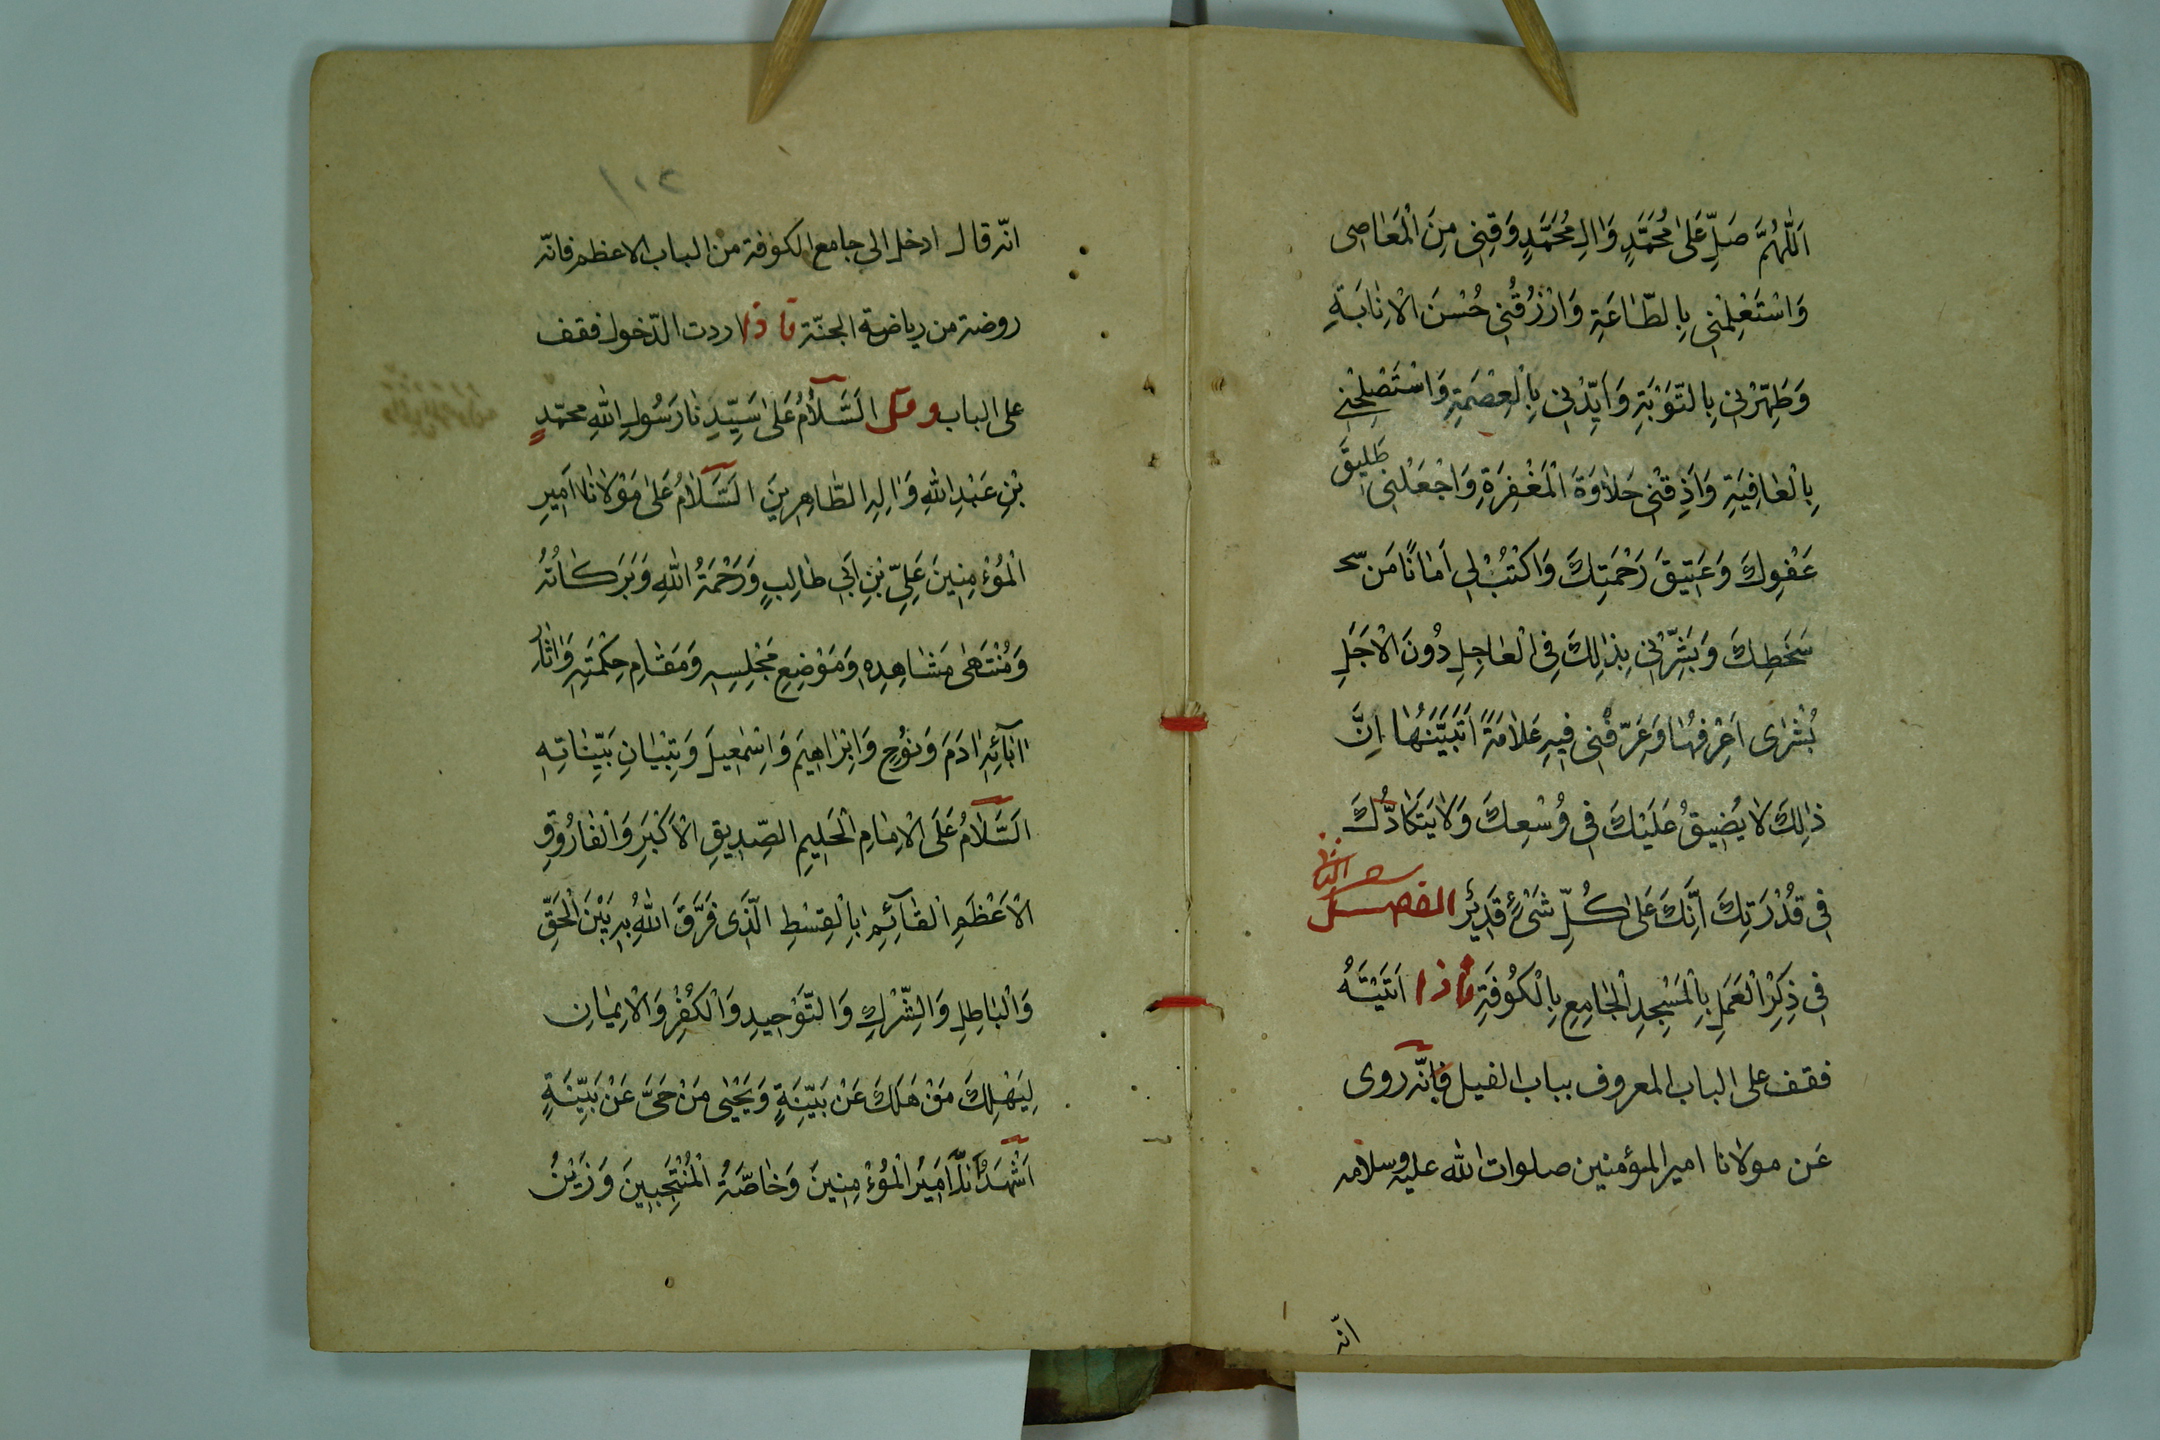 اَللّٰهُمَّ صَلِّ عَلىٰ مُحَمَّدٍ وَاٰلِ مُحَمَّدٍ وَقِنِى مِنَ الْمَعَاصِى
وَاسْتَعْمِلْنِى بِالطّٰاعَةِ وَارْزُقْنِى حُسْنَ الْاِنٰابَةِ
وَطَهِّرْنِى بِالتَّوْبَةِ وَاَيِّدْنِى بِالْعِصْمَةِ وَاسْتَصْلِحْنِى
بِالْعٰافِيَةِ وَاَذِقْنِى حَلاٰوَةَ الْمَغْفِرَةِ وَاجْعَلْنِى طَلِيقَ
عَفْوِكَ وَعَتِيقَ رَحْمَتِكَ وَاكْتُبْ لِى اَمٰانًا مَن سخ
سَخَطِكَ وَبَشِّرْنِى بِذٰلِكَ فِى الْعٰاجِلِ دُونَ الْاٰجَلِ
بُشْرٰى اَعْرِفُهٰا وَعَرِّفْنِى فِيهِ عَلاٰمَةً اَتَبَيَّنُهٰا اِنَّ
ذٰلِكَ لاٰ يُضِيقُ عَلَيْكَ فِى وُسْعِكَ وَلاٰ يَتَكَاٰدُّكَ
فِى قُدْرَتِكَ اَنَّكَ عَلىٰ كُلِّ شَىْءٍ قَدِيرٌ الفصل
فِى ذِكْرِ الْعَمَلِ بِالْمَسْجِدِ الْجٰامِعِ بِالْكُوفَةِ فاذا اَتَيْتَهُ
فقف على الباب المعروف بباب الفيل فانّه روى
عَن مولانا امير المؤمنين صلوات الله عليه وسلامه
انّه
انّه قال ادخل الى جامع الكوفة من الباب الاعظم فانّه
روضة من رياضة الجنّة فاذا اردت الدّخول فقف
على الباب وقل اَلسَّلاٰمُ عَلىٰ سَيِّدِنٰا رَسُولِ اللهِ محمّدٍ
بْنِ عَبْدِ اللهِ وَاٰلِهِ الطّٰاهِرِينَ اَلسَّلاٰمُ عَلىٰ مَوْلاٰنٰا اَمِيرِ
الْمُؤْمِنِينَ عَلِىِّ بْنِ اَبِى طٰالِبٍ وَرَحْمَةُ اللهِ وَبَرَكٰاتُهُ
وَمُنْتَهىٰ مَشٰاهِدِهِ وَمَوْضِعِ مَجْلِسِهِ وَمَقٰامِ حِكْمَتِهِ وَاٰثٰارِ
اٰبٰآئِهِ اٰدَمَ وَنُوْحٍ وَاِبْرٰاهِيمَ وَاِسْمٰعِيلَ وَتِبْيٰانِ بَيِّنٰاتِهِ
اَلسَّلاٰمُ عَلَى الْاِمٰامِ الْحَلِيمِ الصِّدِيقِ الْاَكْبَرِ وَالْفٰارُوقِ
الْاَعْظَمِ الْقٰآئِمِ بِالْقِسْطِ الَّذِى فَرَّقَ اللهُ بِهِ بَيْنَ الْحَقِّ
وَالْبٰاطِلِ وَالشِّرْكِ وَالتَّوْحِيدِ وَالْكُفْرِ وَالْاِيمٰانِ
لِيَهْلِكَ مَنْ هَلَكَ عَنْ بَيِّنَةٍ وَيَحْيٰى مَنْ حَىَّ عَنْ بَيِّنَةٍ
اَشْهَدُ اَنَّكَ اَمِيرُ الْمُؤْمِنِينَ وَخٰاصَّةُ الْمُنْتَجَبِينَ وَزَيْنُ